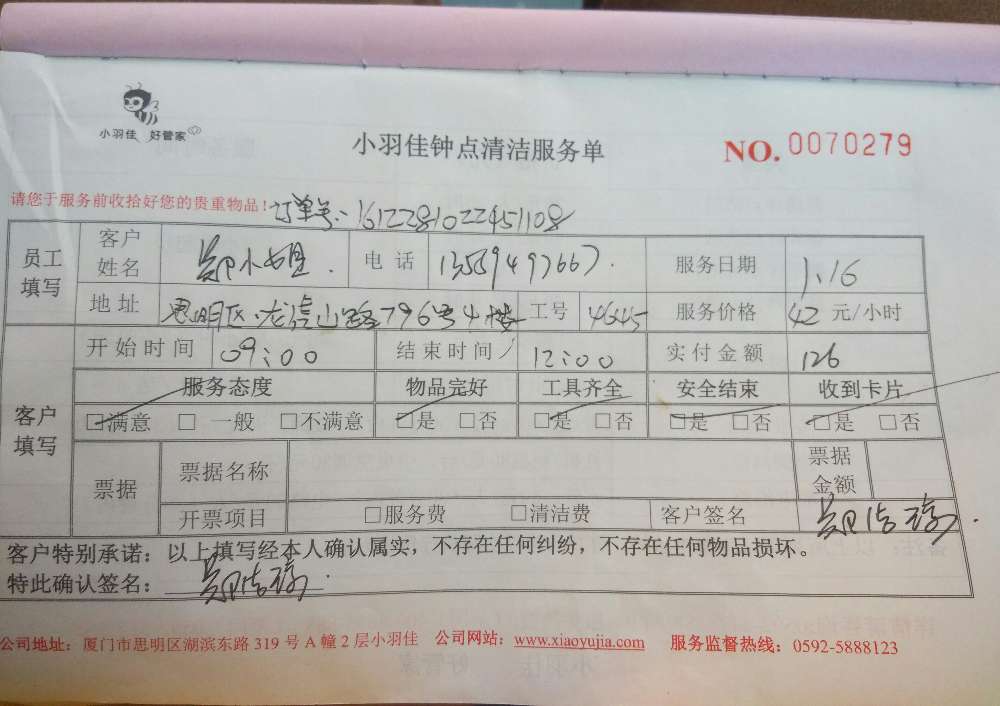 小羽佳 好管家
小羽佳钟点清洁服务单
NO. 0070279
请您于服务前收拾好您的贵重物品! 订单号:1612281022451108
员工填写 客户姓名 郑小姐. 电话 13559497667. 服务日期 1.16
地址 思明区.龙虎山路796号4楼 工号 4645 服务价格 42 元/小时
客户填写 开始时间 09:00 结束时间 12:00 实付金额 126
服务态度 物品完好 工具齐全 安全结束 收到卡片
□满意 □ 一般 □不满意 □是 □否 □是 □否 □是 □否 □是 □否
票据 票据名称 票据金额
开票项目 □服务费 □清洁费 客户签名 郑
客户特别承诺:以上填写经本人确认属实,不存在任何纠纷,不存在任何物品损坏。
特此确认签名: 郑
公司地址:厦门市思明区湖滨东路 319 号 A 幢 2 层小羽佳 公司网站:www.xiaoyujia.com 服务监督热线:0592-5888123